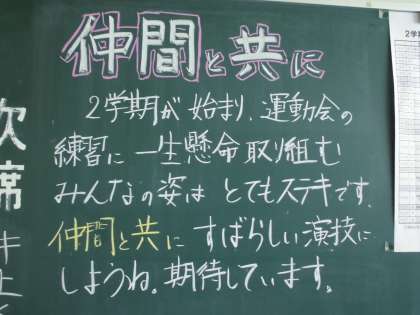 仲間と共に
2学期が始まり、運動会の
練習に一生懸命取り組む
みんなの姿はとてもステキです。
仲間と共にすばらしい演技に
しようね。期待しています。
欠席
2学期